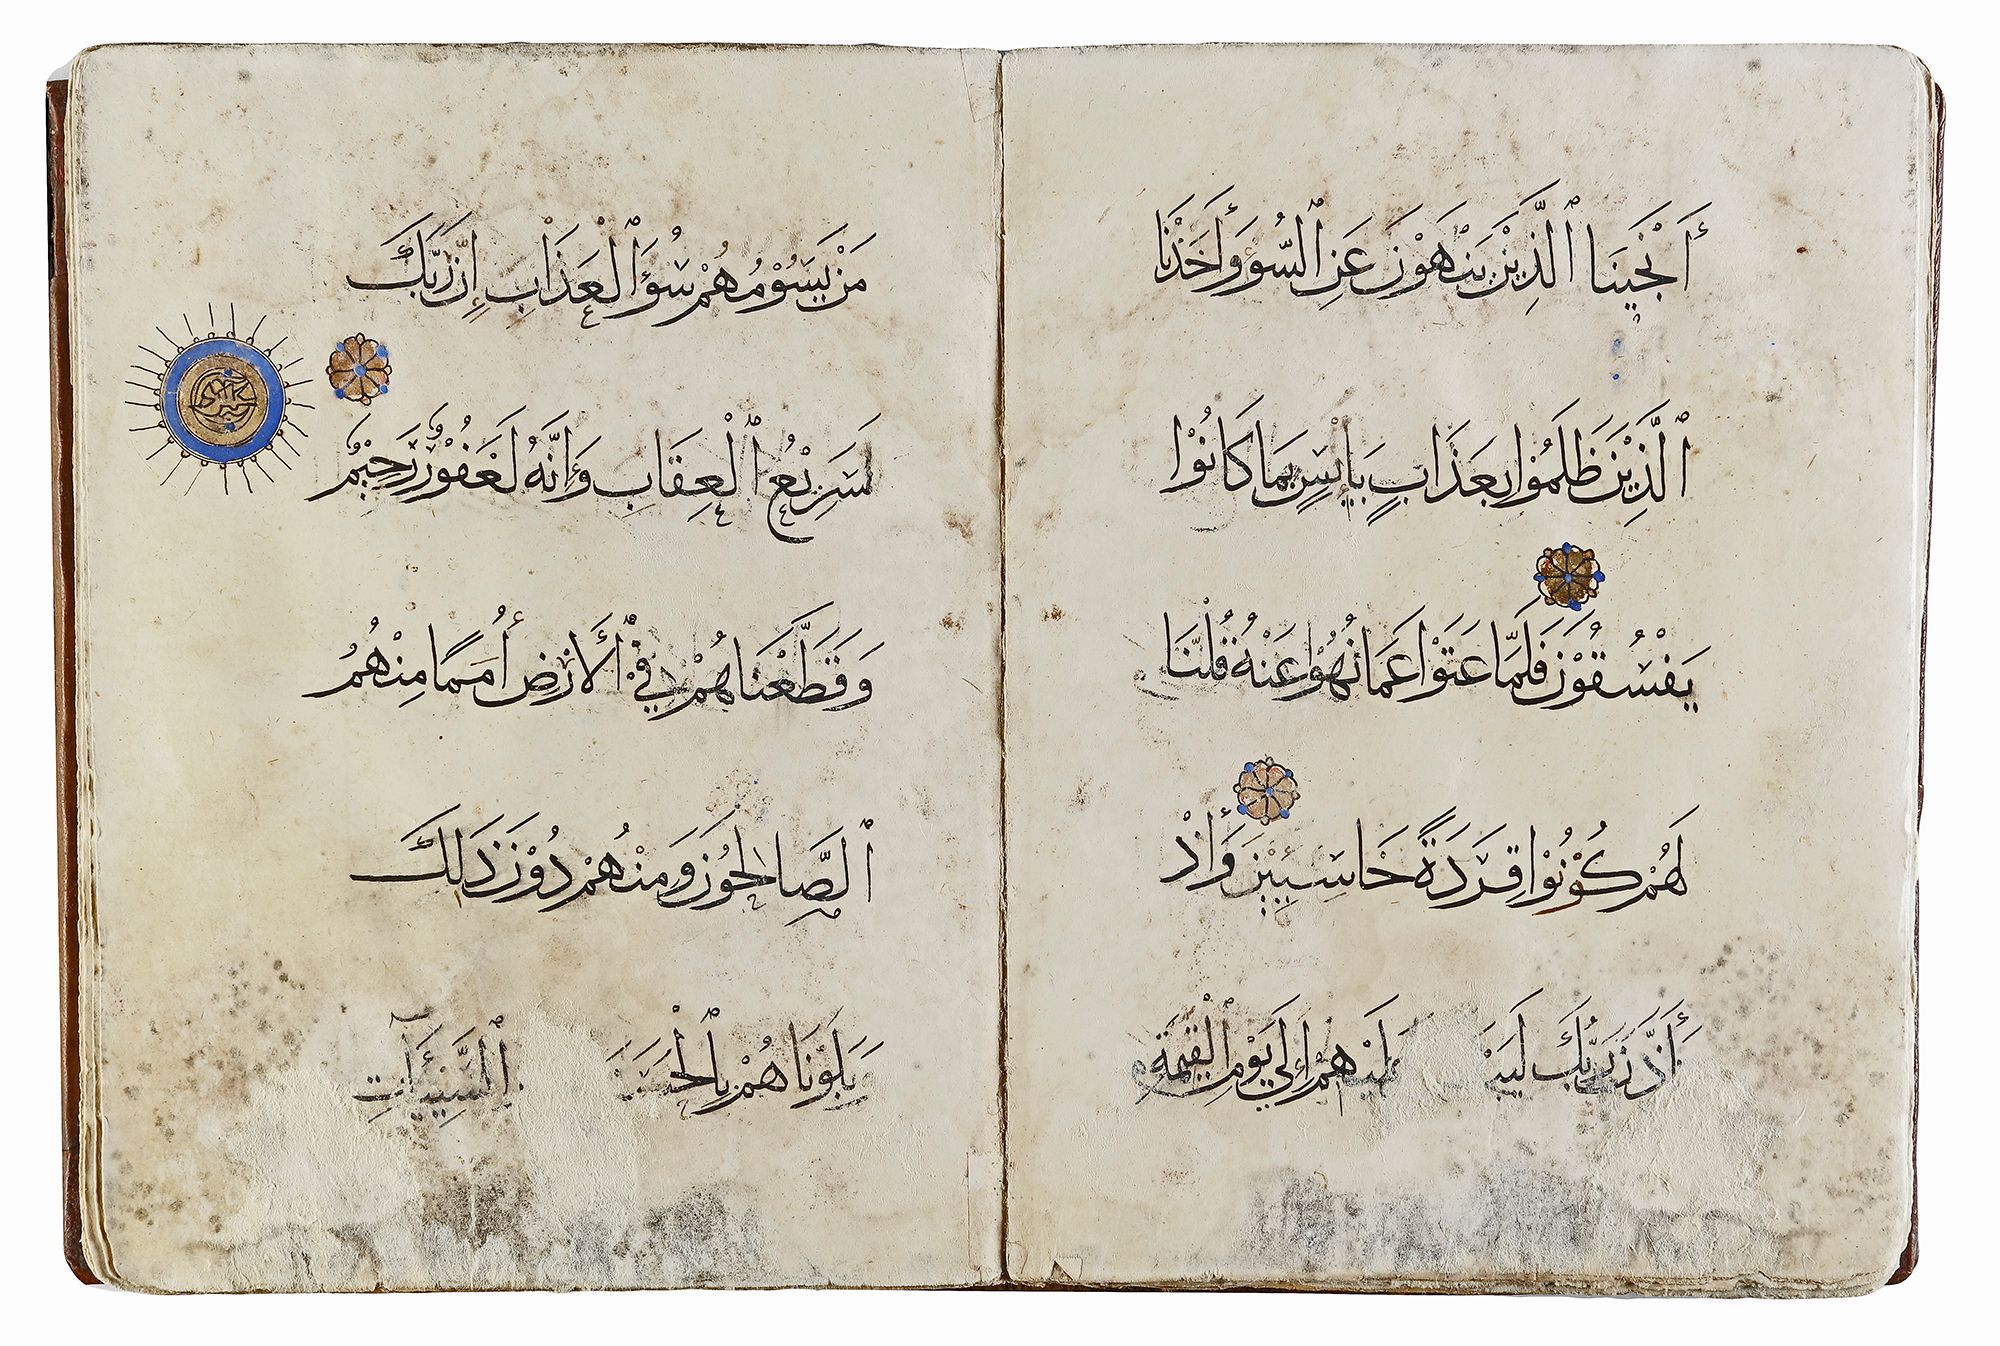 أَنْجَيْنَا ٱلَّذِيْنَ يَنْهَوْنَ عَنِ ٱلسُّوءِ وَأَخَذْنَا
ٱلَّذِيْنَ ظَلَمُوا بِعَذَابٍ بَئِيسٍ بِمَا كَانُوْا
يَفْسُقُوْنَ فَلَمَّا عَتَوْا عَمَّا نُهُوْا عَنْهُ قُلْنَا
لَهُمْ كُوْنُوْا قِرَدَةً خَاسِئِيْنَ وَإِذْ
تَأَذَّنَ رَبُّكَ عَلَيْهِمْ إِلَى يَوْمِ ٱلْقِيٰمَةِ
مَنْ يَسُوْمُهُمْ سُوْءَ ٱلْعَذَابِ إِنَّ رَبَّكَ
لَسَرِيْعُ ٱلْعِقَابِ وَإِنَّهُ لَغَفُوْرٌ رَحِيْمٌ
وَقَطَّعْنَاهُمْ فِي ٱلْأَرْضِ أُمَمًا مِنْهُمُ
ٱلصَّالِحُوْنَ وَمِنْهُمْ دُوْنَ ذَلِكَ
وَبَلَوْنَاهُمْ بِٱلْحَسَنَ ٱلسَّيِّئَآتِ